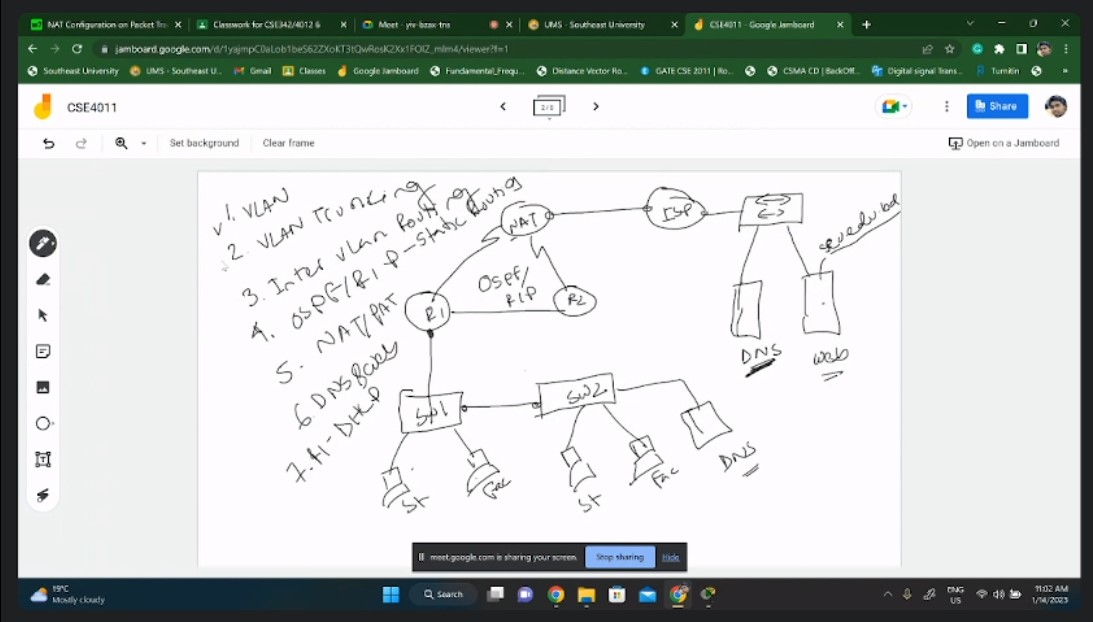 NAT Configuration on Packet Tra
Classwork for CSE342/4012 6
Meet - yiv-bzax-tna
UMS - Southeast University
CSE4011 - Google Jamboard
Southeast University
UMS - Southeast U...
Gmail
Classes
Google Jamboard
Fundamental_Frequ...
Distance Vector Ro...
GATE CSE 2011 | Ro...
CSMA CD | BackOff...
Digital signal Trans...
Turnitin
CSE4011
2/8
Share
Set background
Clear frame
Open on a Jamboard
1. VLAN
2. VLAN Trunking
3. Inter vlan Routing
4. OSPF/RIP-Static Routing
5. NAT/PAT
6. DNS
7. DHCP
NAT
ISP
OSPF/
RIP
R1
R2
DNS
Web
SW1
SW2
St
Fac
St
Fac
DNS
meet.google.com is sharing your screen.
Stop sharing
Hide
19°C
Mostly cloudy
Search
ENG
US
11:02 AM
1/14/2023